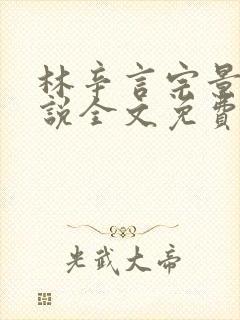 林辛言宗景
說全文免費
光武大帝